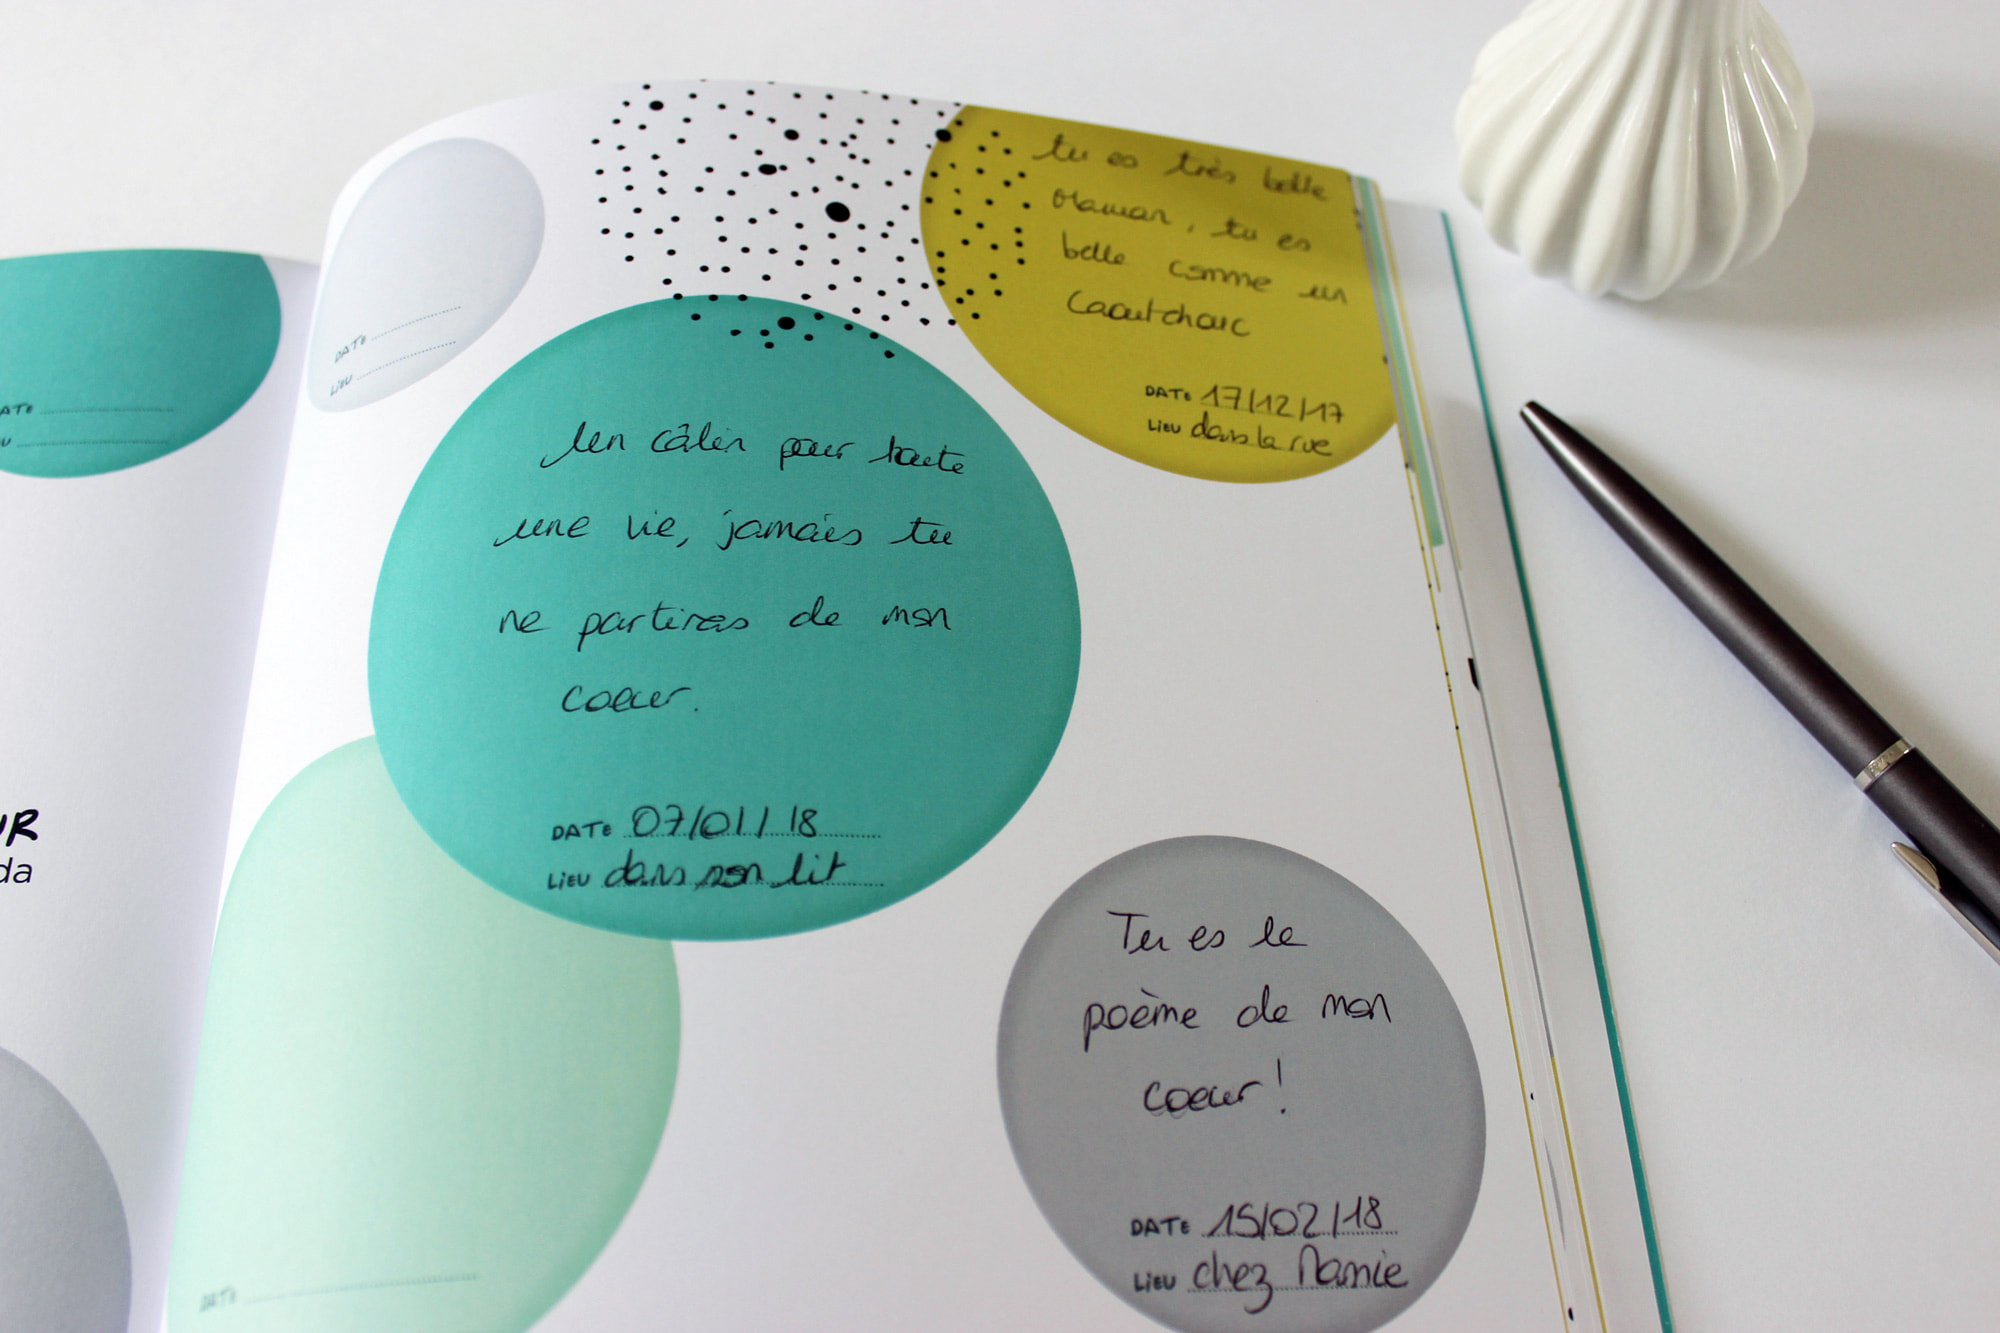 DATE
LIEU
tu es très belle
Maman, tu es
belle comme un
Caoutchouc
DATE 17/12/17
LIEU dans la rue
Un câlin pour toute
une vie, jamais tu
ne partiras de mon
coeur.
DATE 07/01/18
LIEU dans son lit
Tu es le
poème de mon
coeur!
DATE 15/02/18
LIEU chez Mamie
DATE
ATE
U
UR
da